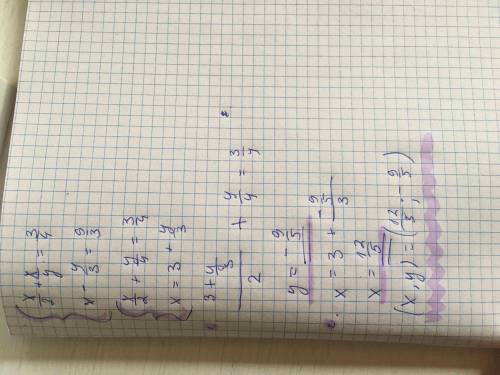 x/2 + y/4 = 3/4
x - y/3 = 9/3
x/2 + y/4 = 3/4
x = 3 + y/3
1. (3 + y/3)/2 + y/4 = 3/4
y = -9/5
2. x = 3 + (-9/5)/3
x = 12/5
(x, y) = (12/5; -9/5)